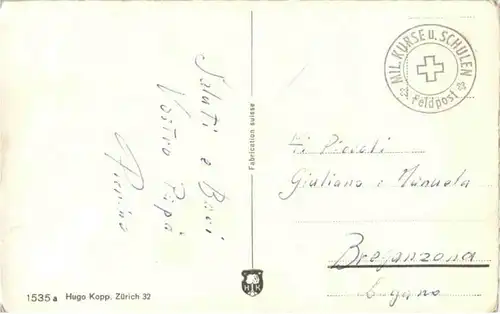 Saluti e Baci
Vostro Papà
Pierino
Fabrication suisse
MIL. KURSE u. SCHULEN
Feldpost
Ai Piccoli
Giuliano e Manuela
Breganzona
Lugano
1535 a Hugo Kopp. Zürich 32
H K